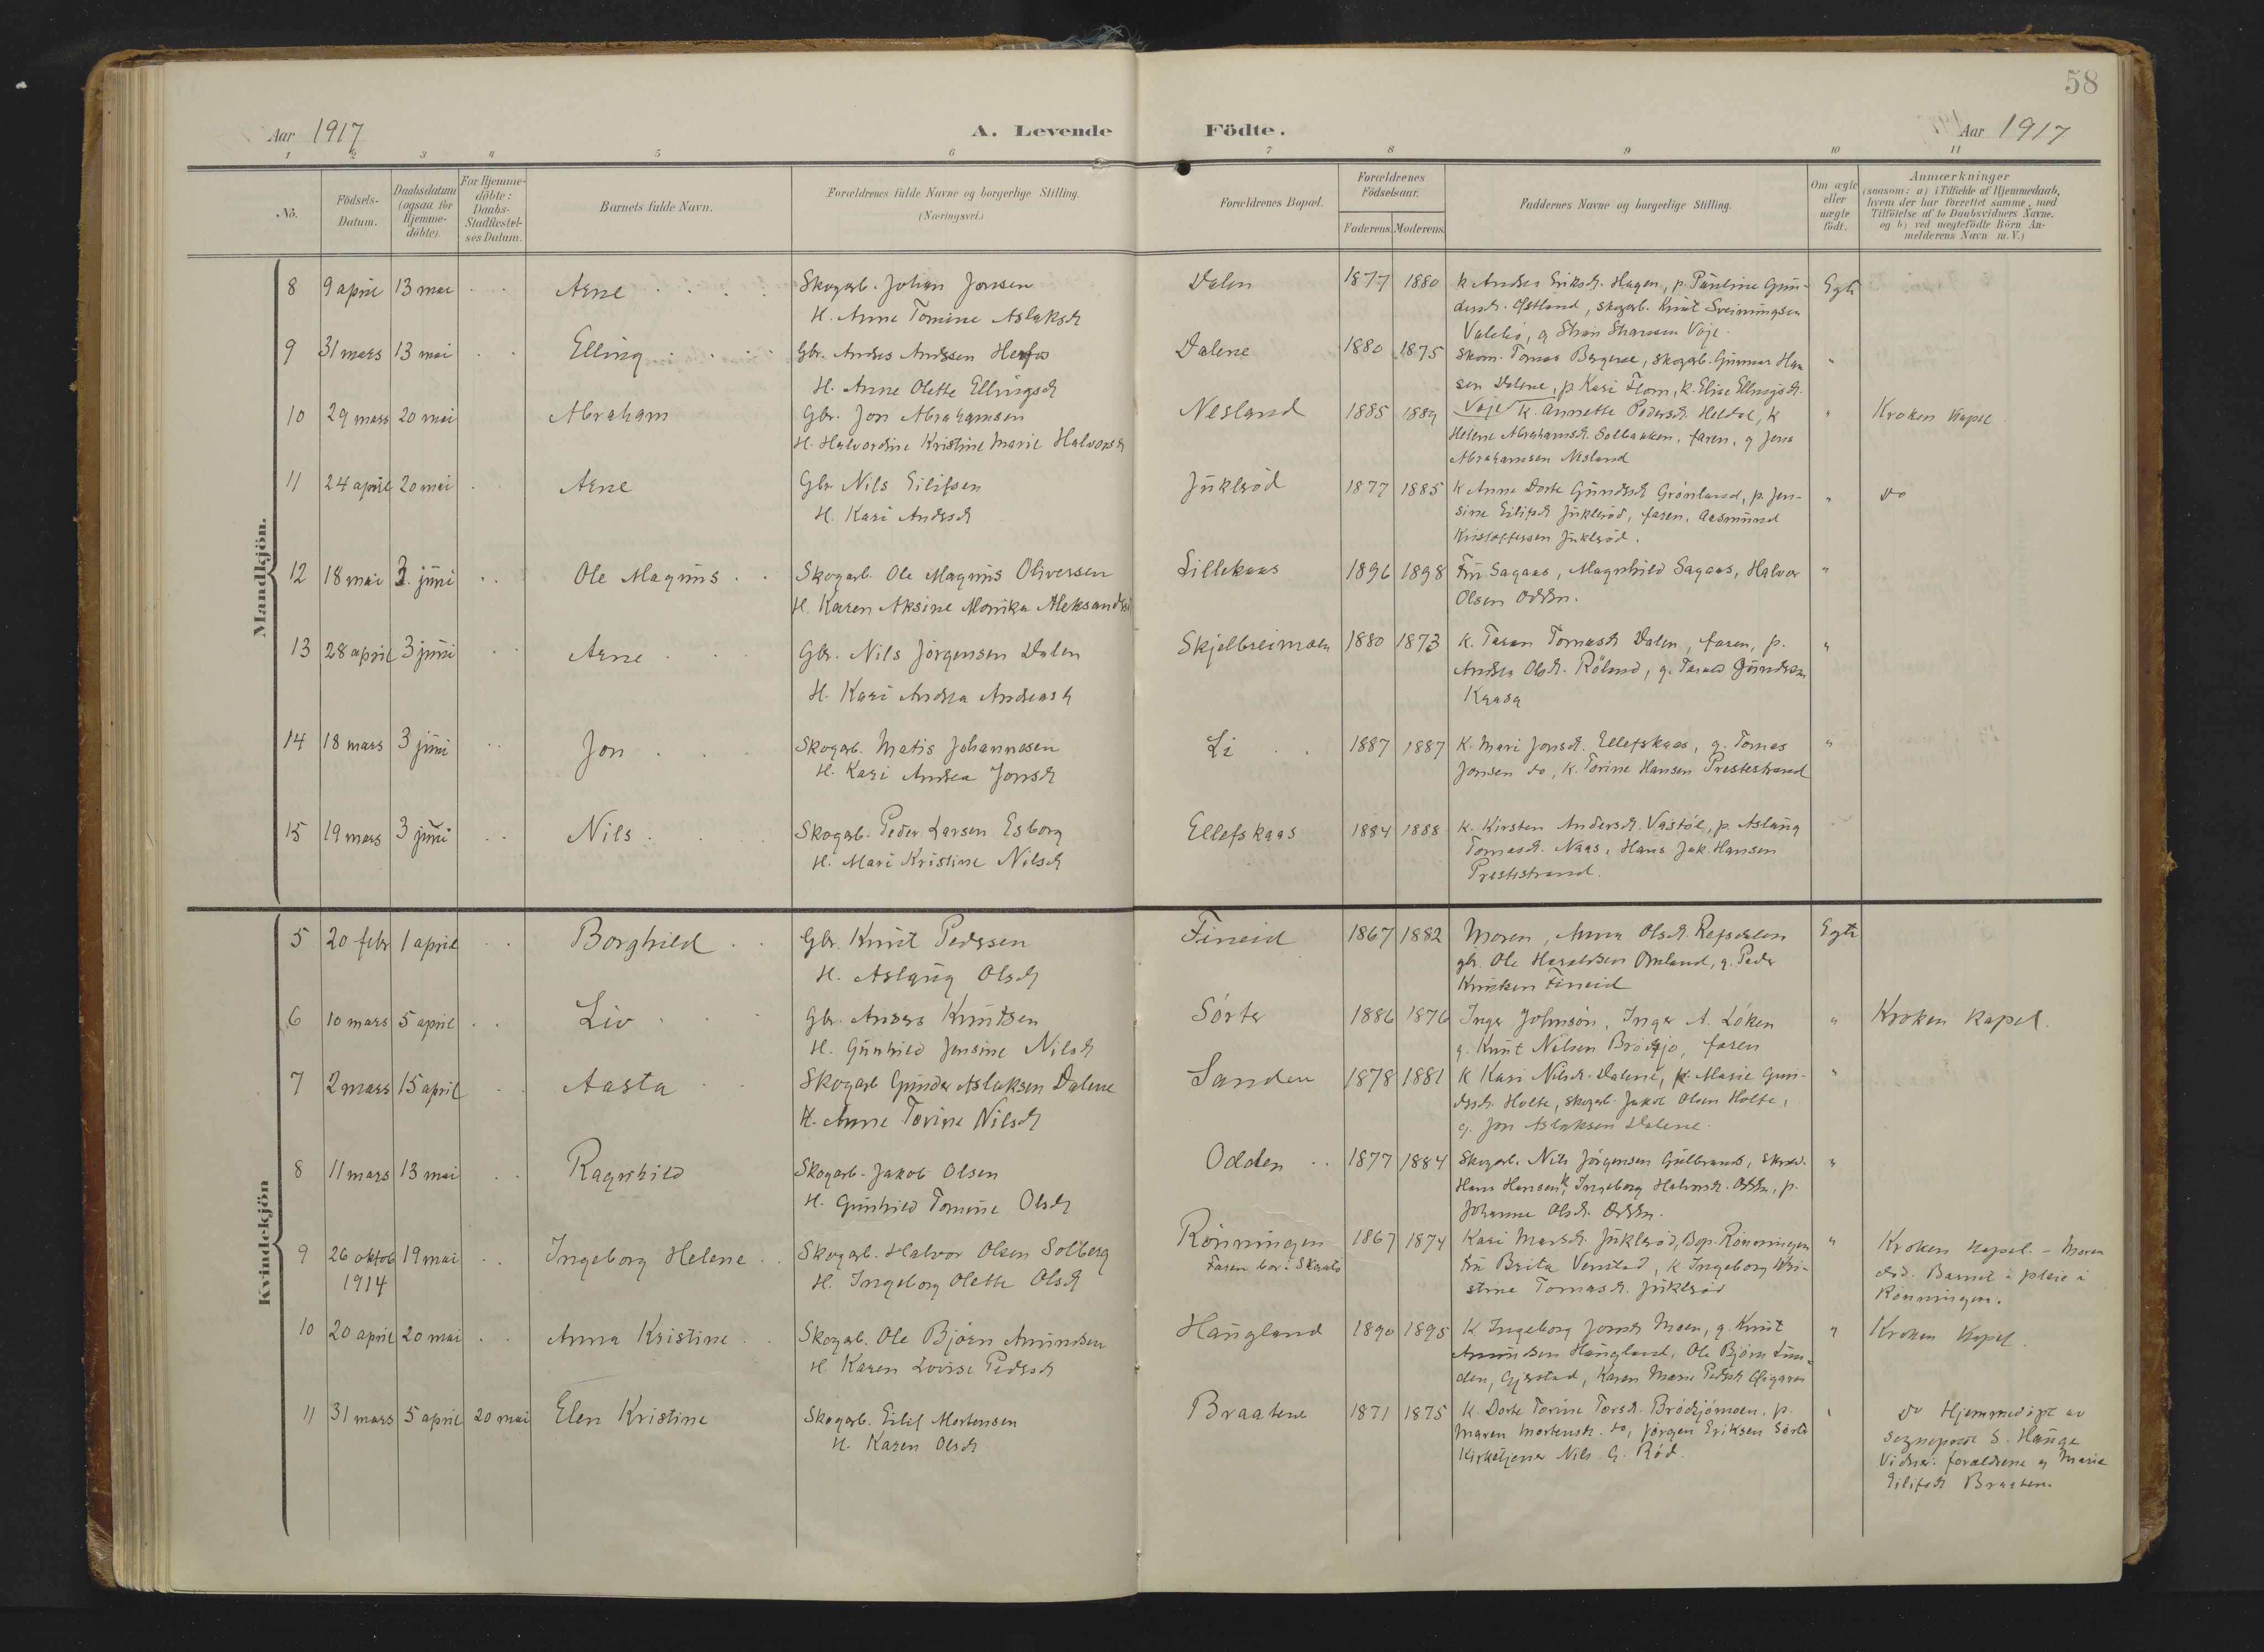 58
Aar 1917
A. Levende
Födte.
Aar 1917
1 2 3 4 5 6 7 8 9 10 11
No.
Födsels-
Datum.
Daabsdatum
(ogsaa for
Hjemme-
döbte).
For Hjemme-
döbte:
Daabs-
Stadfæstel-
ses Datum.
Barnets fulde Navn.
Forældrenes fulde Navne og borgerlige Stilling.
(Næringsvei.)
Forældrenes Bopæl.
Forældrenes
Födselsaar.
Faderens. Moderens.
Faddernes Navne og borgerlige Stilling.
Om ægte
eller
uægte
födt.
Anmærkninger
(saasom: a) i Tilfælde af Hjemmedaab,
hvem der har forrettet samme, med
Tilföielse af to Daabsvidners Navne.
og b) ved uægtefödte Börn An-
melderens Navn m. V.)
Mandkjön.
8 9 april 13 mai Arne
Skogarb. Johan Jonsen
H. Anne Tomine Aslaksd
Dalen 1877 1880
k Andrea Eriksd. Hagen, p. Pauline Gun-
dersd. Østland, skogarb. Knut Sveinungsen
Valebö, g Steen Stenssen Voje.
Egte
9 31 mars 13 mai Elling
Gbr. Anders Andersen Herfos
H. Anne Olette Ellingsd
Dalene 1880 1875
Skom. Tomas Bergene, skogarb. Gunnar Han
sen Dalene, p Kari Flom, k. Elise Ellingsd.
Voje
"
10 29 mars 20 mai Abraham
Gbr. Jon Abrahamsen
H. Halvordine Kristine Marie Halvorsd
Nesland 1885 1889
k. Annette Pedersd. Heldal, k
Helene Abrahamsd. Solbakken, faren, g Jens
Abrahamsen Nesland
"
Kroken Kapel
11 24 april 20 mai Arne
Gbr Nils Eilifsen
H. Kari Andersd
Jukleröd 1877 1885
k Anne Dorte Gundersd Grönland, p. Jen-
sine Eilifsd Jukleröd, faren, Aasmund
Kristoffersen Jukleröd.
"
do
12 18 mai 3. juni Ole Magnus
Skogarb. Ole Magnus Oliversen
H. Karen Aksine Monika Aleksandersd
Lillekaas 1896 1898
Fru Sagaas, Magnhild Sagaas, Halvor
Olsen Odden.
"
13 28 april 3 juni Arne
Gbr. Nils Jörgensen Dalen
H. Kari Andrea Andreasd
Skjelbreimoen 1880 1873
k. Taran Tomasd Dalen, faren, p.
Andrea Olsd. Rölund, g. Tarald Gundersen
Kraag
"
14 18 mars 3 juni Jon
Skogarb. Matis Johannesen
H. Kari Andrea Jonsd
Li 1887 1887
K. Mari Jonsd. Ellefskaas, g. Tomas
Jonsen do, k. Torine Hansen Prestestrand
"
15 19 mars 3 juni Nils
Skogarb. Peder Larsen Esborg
H. Mari Kristine Nilsd
Ellefskaas 1884 1888
k. Kirsten Andersd. Vastöl, p. Aslaug
Tomasd. Naas, Hans Jak. Hansen
Prestestrand.
Kvindekjön
5 20 febr 1 april Borghild
Gbr. Knut Pedersen
H. Aslaug Olsd
Fineid 1867 1882
Moren, Anna Olsd. Refsdalen
gbr. Ole Haraldsen Omland, g. Peder
Knutsen Fineid
Egte
6 10 mars 5 april Liv
Gbr. Anders Knutsen
H. Gunhild Jensine Nilsd
Sörter 1886 1876
Inger Johnsön, Inger A. Löken
g. Knut Nilsen Brödsjö, faren
"
Kroken kapel.
7 2 mars 15 april Aasta
Skogarb Gunder Aslaksen Dalene
H. Anne Torine Nilsd
Sanden 1878 1881
K Kari Nilsd. Dalene, k. Marie Gun-
dersd. Holte, skogarb. Jakob Olsen Holte,
g. Jon Aslaksen Dalene.
"
8 11 mars 13 mai Ragnhild
Skogarb. Jakob Olsen
H. Gunhild Tomine Olsd
Odden 1877 1884
Skogarb. Nils Jörgensen Gulbrands, Skræd.
Hans Hansen, k Ingeborg Halvorsd. Odden, p.
Johanne Olsd. Odden.
"
9 26 oktob 19 mai Ingeborg Helene
1914
Skogarb. Halvor Olsen Solberg
H. Ingeborg Olette Olsd
Rönningen 1867 1874
Faren bor i Skaatö
Kari Marsd. Jukleröd, Bop. Rönningen
fru Brita Venstad, k. Ingeborg Kri-
stine Tomasd. Jukleröd
"
Kroken kapel. - Moren
död. Barnet i pleie i
Rönningen.
10 20 april 20 mai Anna Kristine
Skogarb. Ole Björn Amundsen
H Karen Lovise Pedersd
Haugland 1890 1895
K. Ingeborg Jonsd Moen, g. Knut
Amundsen Haugland, Ole Björn Lun-
den, Gjerstad, Karen Marie Pedersd
"
Kroken Kapel.
11 31 mars 5 april 20 mai Elen Kristine
Skogarb. Eilef Mortensen
H. Karen Olsd
Braatene 1871 1875
K. Dorte Torine Torsd. Brödsjömoen, p.
Maren Mortensd. do, Jörgen Eriksen Sörter
Kirketjener Nils G. Röd.
"
do Hjemmedöpt av
sogneprest S. Hauge
Vidner: forældrene og Marie
Eilifsd Braaten.